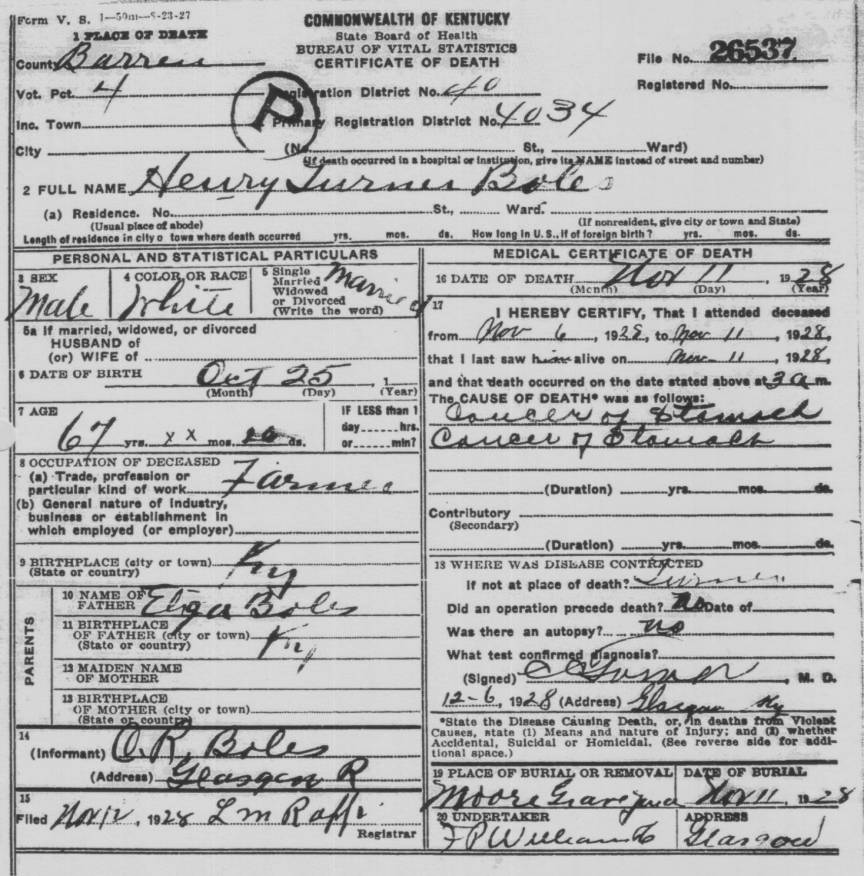 Form V. S. 1—50m—8-23-27
COMMONWEALTH OF KENTUCKY
State Board of Health
BUREAU OF VITAL STATISTICS
CERTIFICATE OF DEATH
1 PLACE OF DEATH
County Barren
File No. 26537
Registered No.
Vot. Pct. 4
Registration District No. 40
P
Inc. Town
Primary Registration District No. 4034
City (No. St., Ward)
(If death occurred in a hospital or institution, give its NAME instead of street and number)
2 FULL NAME Henry Turner Boles
(a) Residence. No. St., Ward.
(Usual place of abode) (If nonresident, give city or town and State)
Length of residence in city o town where death occurred yrs. mos. ds. How long in U.S., if of foreign birth? yrs. mos. ds.
PERSONAL AND STATISTICAL PARTICULARS
3 SEX Male
4 COLOR OR RACE White
5 Single
Married
Widowed
or Divorced
(Write the word) Married
5a If married, widowed, or divorced
HUSBAND of
(or) WIFE of
6 DATE OF BIRTH Oct 25, 1
(Month) (Day) (Year)
7 AGE
67 yrs. x x mos. ds.
IF LESS than 1
day hrs.
or min?
8 OCCUPATION OF DECEASED
(a) Trade, profession or
particular kind of work Farmer
(b) General nature of industry,
business or establishment in
which employed (or employer)
9 BIRTHPLACE (city or town)
(State or country) Ky
PARENTS
10 NAME OF
FATHER Boles
11 BIRTHPLACE
OF FATHER (city or town)
(State or country) Ky
12 MAIDEN NAME
OF MOTHER
13 BIRTHPLACE
OF MOTHER (city or town)
(State or country)
14
(Informant) O. R. Boles
(Address) Glasgow R
15
Filed Nov 12, 1928 L M
Registrar
MEDICAL CERTIFICATE OF DEATH
16 DATE OF DEATH Nov 11, 1928
(Month) (Day) (Year)
17
I HEREBY CERTIFY, That I attended deceased
from Nov 6, 1928, to Nov 11, 1928,
that I last saw him alive on Nov 11, 1928,
and that death occurred on the date stated above at 3 a m.
The CAUSE OF DEATH* was as follows:
Cancer of Stomach
Cancer of Stomach
(Duration) yrs. mos. ds.
Contributory
(Secondary)
(Duration) yrs. mos. ds.
18 WHERE WAS DISEASE CONTRACTED
If not at place of death?
Did an operation precede death? no Date of
Was there an autopsy? no
What test confirmed diagnosis?
(Signed) , M. D.
12-6, 1928 (Address) Glasgow Ky
*State the Disease Causing Death, or, in deaths from Violent
Causes, state (1) Means and nature of Injury; and (2) whether
Accidental, Suicidal or Homicidal. (See reverse side for addi-
tional space.)
19 PLACE OF BURIAL OR REMOVAL
Moore Graveyard
DATE OF BURIAL
Nov 11, 1928
20 UNDERTAKER
ADDRESS
Glasgow